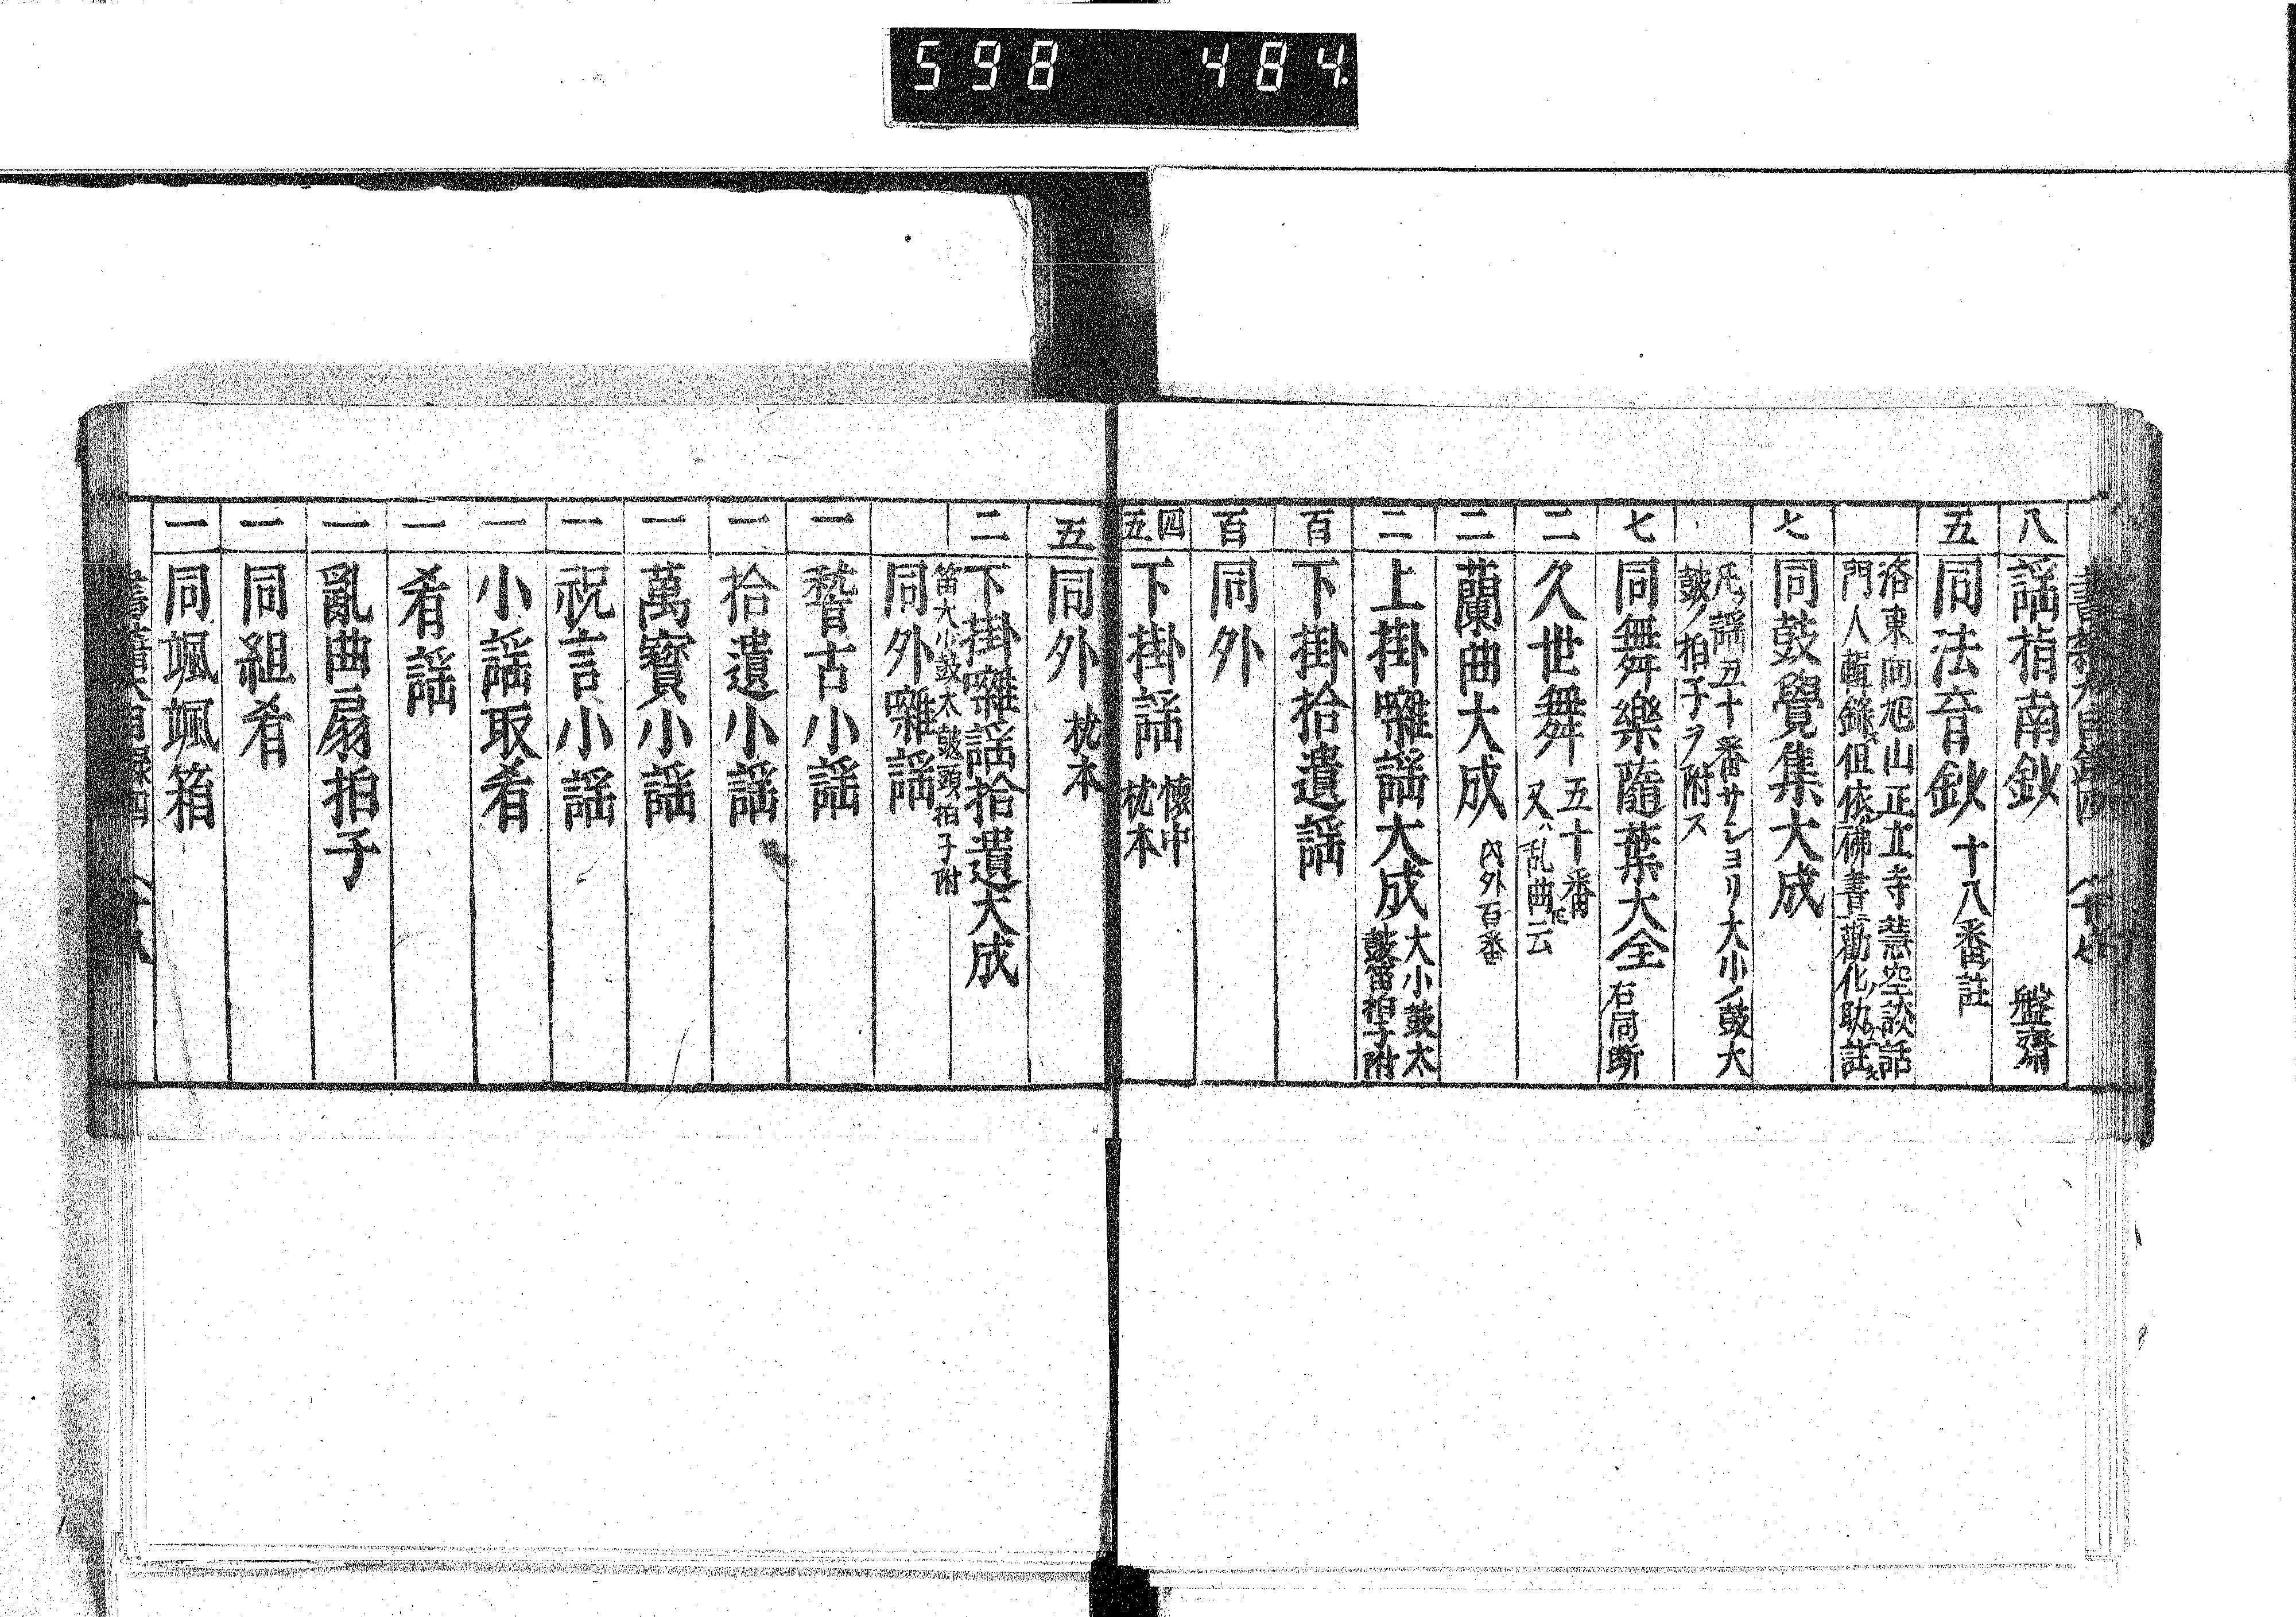 598 484.
八 謡指南鈔 盤齋
五 同法音鈔 十八番註
洛東回旭山正立寺慧空談話
門人輯錄但依佛書勸化助註
七 同鼓覺集大成
凡ソ謡五十番サシヨリ大小ノ鼓大
鼓ノ拍子ヲ附ス
七 同舞樂蘊葉大全 右同断
二 久世舞 五十番
又ハ乱曲ト云
二 蘭曲大成 内外百番
二 上掛囃謡大成 大小鼓太
鼓笛拍子附
百 下掛拾遺謡
百 同外
四 五 下掛謡 懷中
枕本
五 同外 枕本
二 下掛囃謡拾遺大成
笛大小鼓太鼓頭拍子附
同外囃謡
一 稽古小謡
一 拾遺小謡
一 萬寶小謡
一 祝言小謡
一 小謡取肴
一 肴謡
一 亂曲扇拍子
一 同組肴
一 同颯颯箱